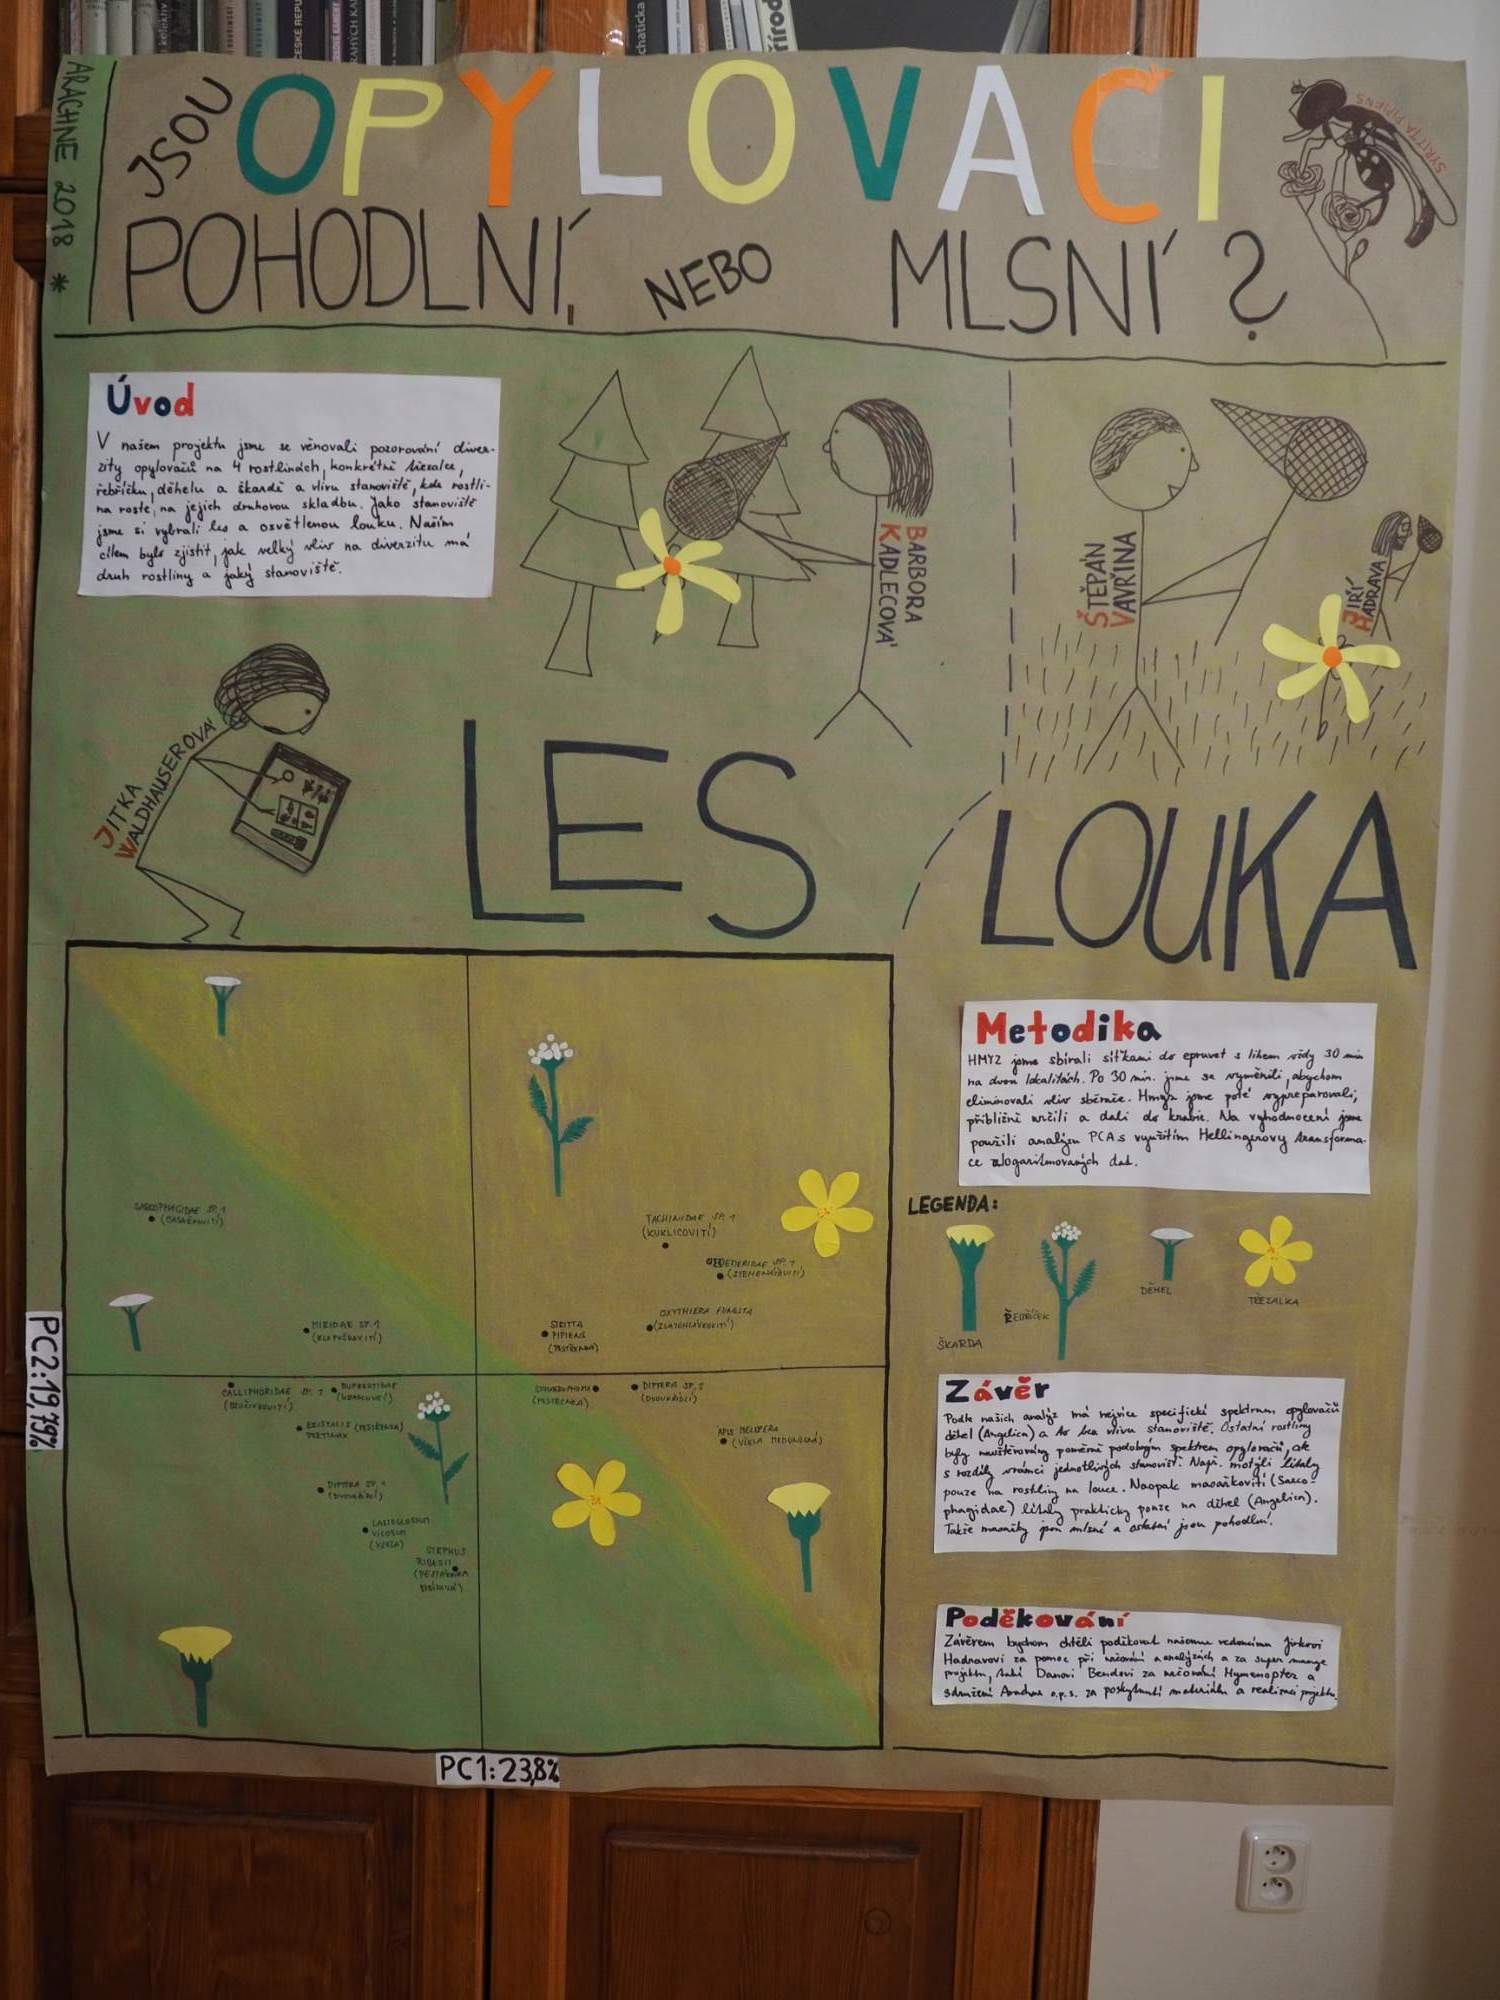 ARACHNE 2018 *
JSOU OPYLOVAČI
POHODLNÍ, NEBO MLSNÍ?
SYRITTA PIPIENS
Úvod
V našem projektu jsme se věnovali pozorování diver-
zity opylovačů na 4 rostlinách, konkrétně třezalce,
řebříčku, děhelu a škardě a vlivu stanoviště, kde rostli-
na roste, na jejich druhovou skladbu. Jako stanoviště
jsme si vybrali les a osvětlenou louku. Naším
cílem bylo zjistit, jak velký vliv na diverzitu má
druh rostliny a jaký stanoviště.
BARBORA
KADLECOVÁ
ŠTĚPÁN
VAVŘINA
JIŘÍ
HADRAVA
JITKA
WALDHAUSEROVÁ
LES
LOUKA
Metodika
HMYZ jsme sbírali síťkami do epruvet s lihem vždy 30 min
na dvou lokalitách. Po 30 min. jsme se vyměnili, abychom
eliminovali vliv sběrače. Hmyz jsme poté vypreparovali,
přibližně určili a dali do krabic. Na vyhodnocení jsme
použili analýzu PCA s využitím Hellingerovy transforma-
ce zlogaritmovaných dat.
LEGENDA:
ŠKARDA
ŘEBŘÍČEK
DĚHEL
TŘEZALKA
SARCOPHAGIDAE SP. 1
(MASAŘKOVITÍ)
TACHINIDAE SP. 1
(KUKLICOVITÍ)
OEDEMERIDAE SP. 1
(STEHENÁČOVITÍ)
OXYTHIERA FUNESTA
(ZLATOHLÁVKOVITÍ)
MIRIDAE SP. 1
(KLOPUŠKOVITÍ)
SIRITTA
PIPIENS
(PESTŘENKA)
CALLIPHORIDAE SP. 1
(BZUČIVKOVITÍ)
BUPRESTIDAE
(KRASCOVITÍ)
ERISTALIS (PESTŘENKA)
PERTINAX
(PESTŘENKA)
DIPTERA SP. 2
(DVOUKŘÍDLÍ)
APIS MELIFERA
(VČELA MEDONOSNÁ)
DIPTERA SP. 1
(DVOUKŘÍDLÍ)
LASIOGLOSSUM
(VČELA)
RIBESII
(PESTŘENKA
PC2: 19,79%
PC1: 23,8%
Závěr
Podle našich analýz má nejvíce specifické spektrum opylovačů
děhel (Angelica) a to bez vlivu stanoviště. Ostatní rostliny
byly navštěvovány poměrně podobným spektrem opylovačů, ale
s rozdíly v rámci jednotlivých stanovišť. Např. motýli lítaly
pouze na rostliny na louce. Naopak masařkovití (Sarco-
phagidae) lítaly prakticky pouze na děhel (Angelica).
Takže masařky jsou mlsné a ostatní jsou pohodlní.
Poděkování
Závěrem bychom chtěli poděkovat našemu vedoucímu Jirkovi
Hadravovi za pomoc při určování a analýzách a za super
projektu, také Danovi Bendovi za určování Hymenopter a
sdružení Arachne o.p.s. za poskytnutí materiálu a realizaci projektu.